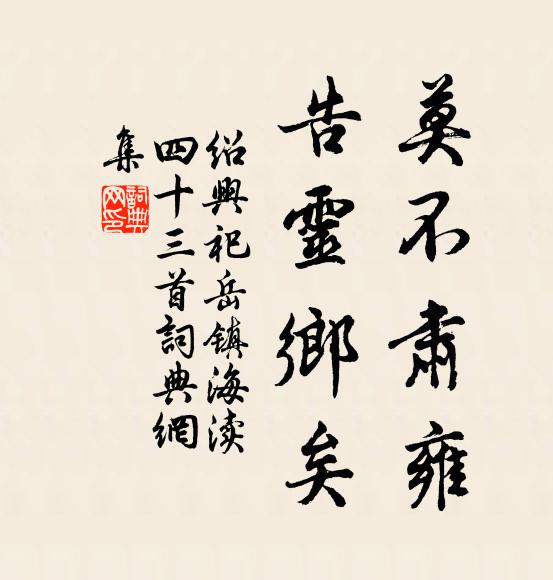 莫不肅雍
告靈鄉矣
绍興祀岳镇海渎
四十三首詞典網
集
詞典
网印